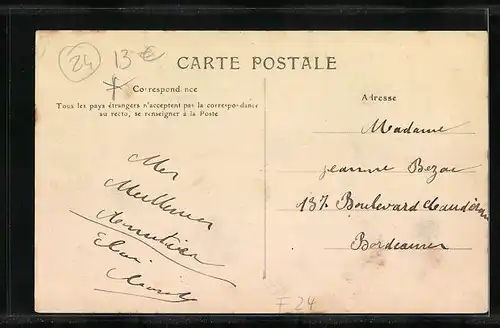 24
13 €
CARTE POSTALE
Correspondance
Tous les pays étrangers n'acceptent pas la correspondance
au recto, se renseigner à la Poste
Adresse
Mes
Meilleures
Amitiés
Madame
Jeanne Bezac
137 Boulevard Caudéran
Bordeaux
F 24